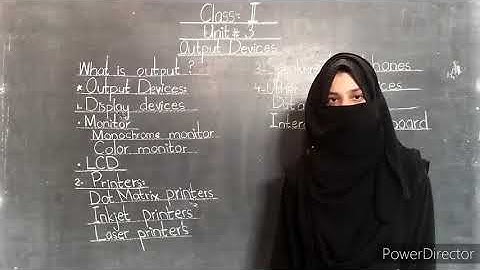 Class: II
Unit # 3
Output Devices
What is output?
* Output Devices:
1. Display devices
• Monitor
Monochrome monitor
Color monitor
• LCD
2. Printers:
Dot Matrix printers
Inkjet printers
Laser printers
3.
4.
Data
Inter board
PowerDirector